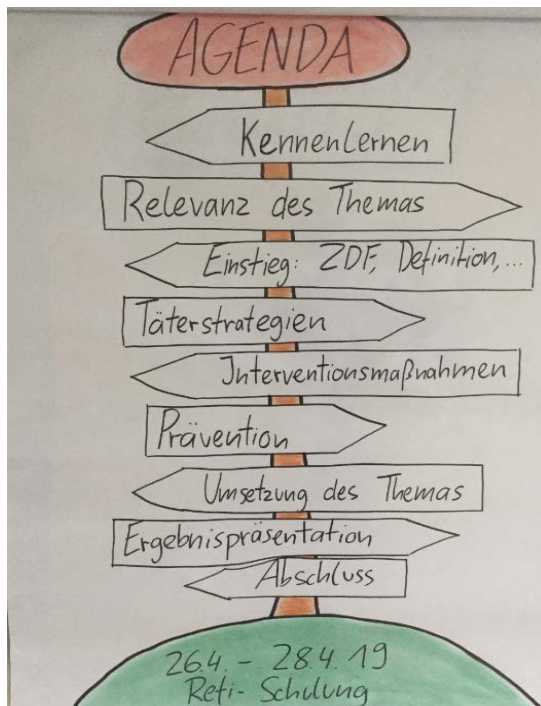 AGENDA
Kennenlernen
Relevanz des Themas
Einstieg: ZDF, Definition,...
Täterstrategien
Interventionsmaßnahmen
Prävention
Umsetzung des Themas
Ergebnispräsentation
Abschluss
26.4. - 28.4.19
Refi- Schulung